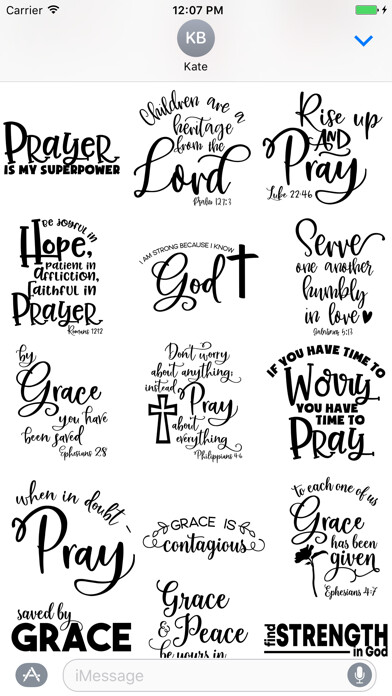 Carrier
12:07 PM
KB
Kate
PRAYER
IS MY SUPERPOWER
Children are a
heritage
from the
Lord
Psalm 127:3
Rise up
AND
Pray
Luke 22:46
Be joyful in
Hope,
patient in
affliction,
faithful in
Prayer
Romans 12:12
I AM STRONG BECAUSE I KNOW
God
Serve
one another
humbly
in love
Galatians 5:13
by
Grace
you have
been saved
Ephesians 2:8
Don't worry
about anything;
instead
Pray
about
everything
Philippians 4:6
IF YOU HAVE TIME TO
Worry
YOU HAVE
TIME TO
PRAY
when in doubt-
Pray
GRACE IS
contagious
to each one of us
Grace
has been
given
Ephesians 4:7
saved by
GRACE
Grace
& Peace
be yours in
find
STRENGTH
in God
iMessage